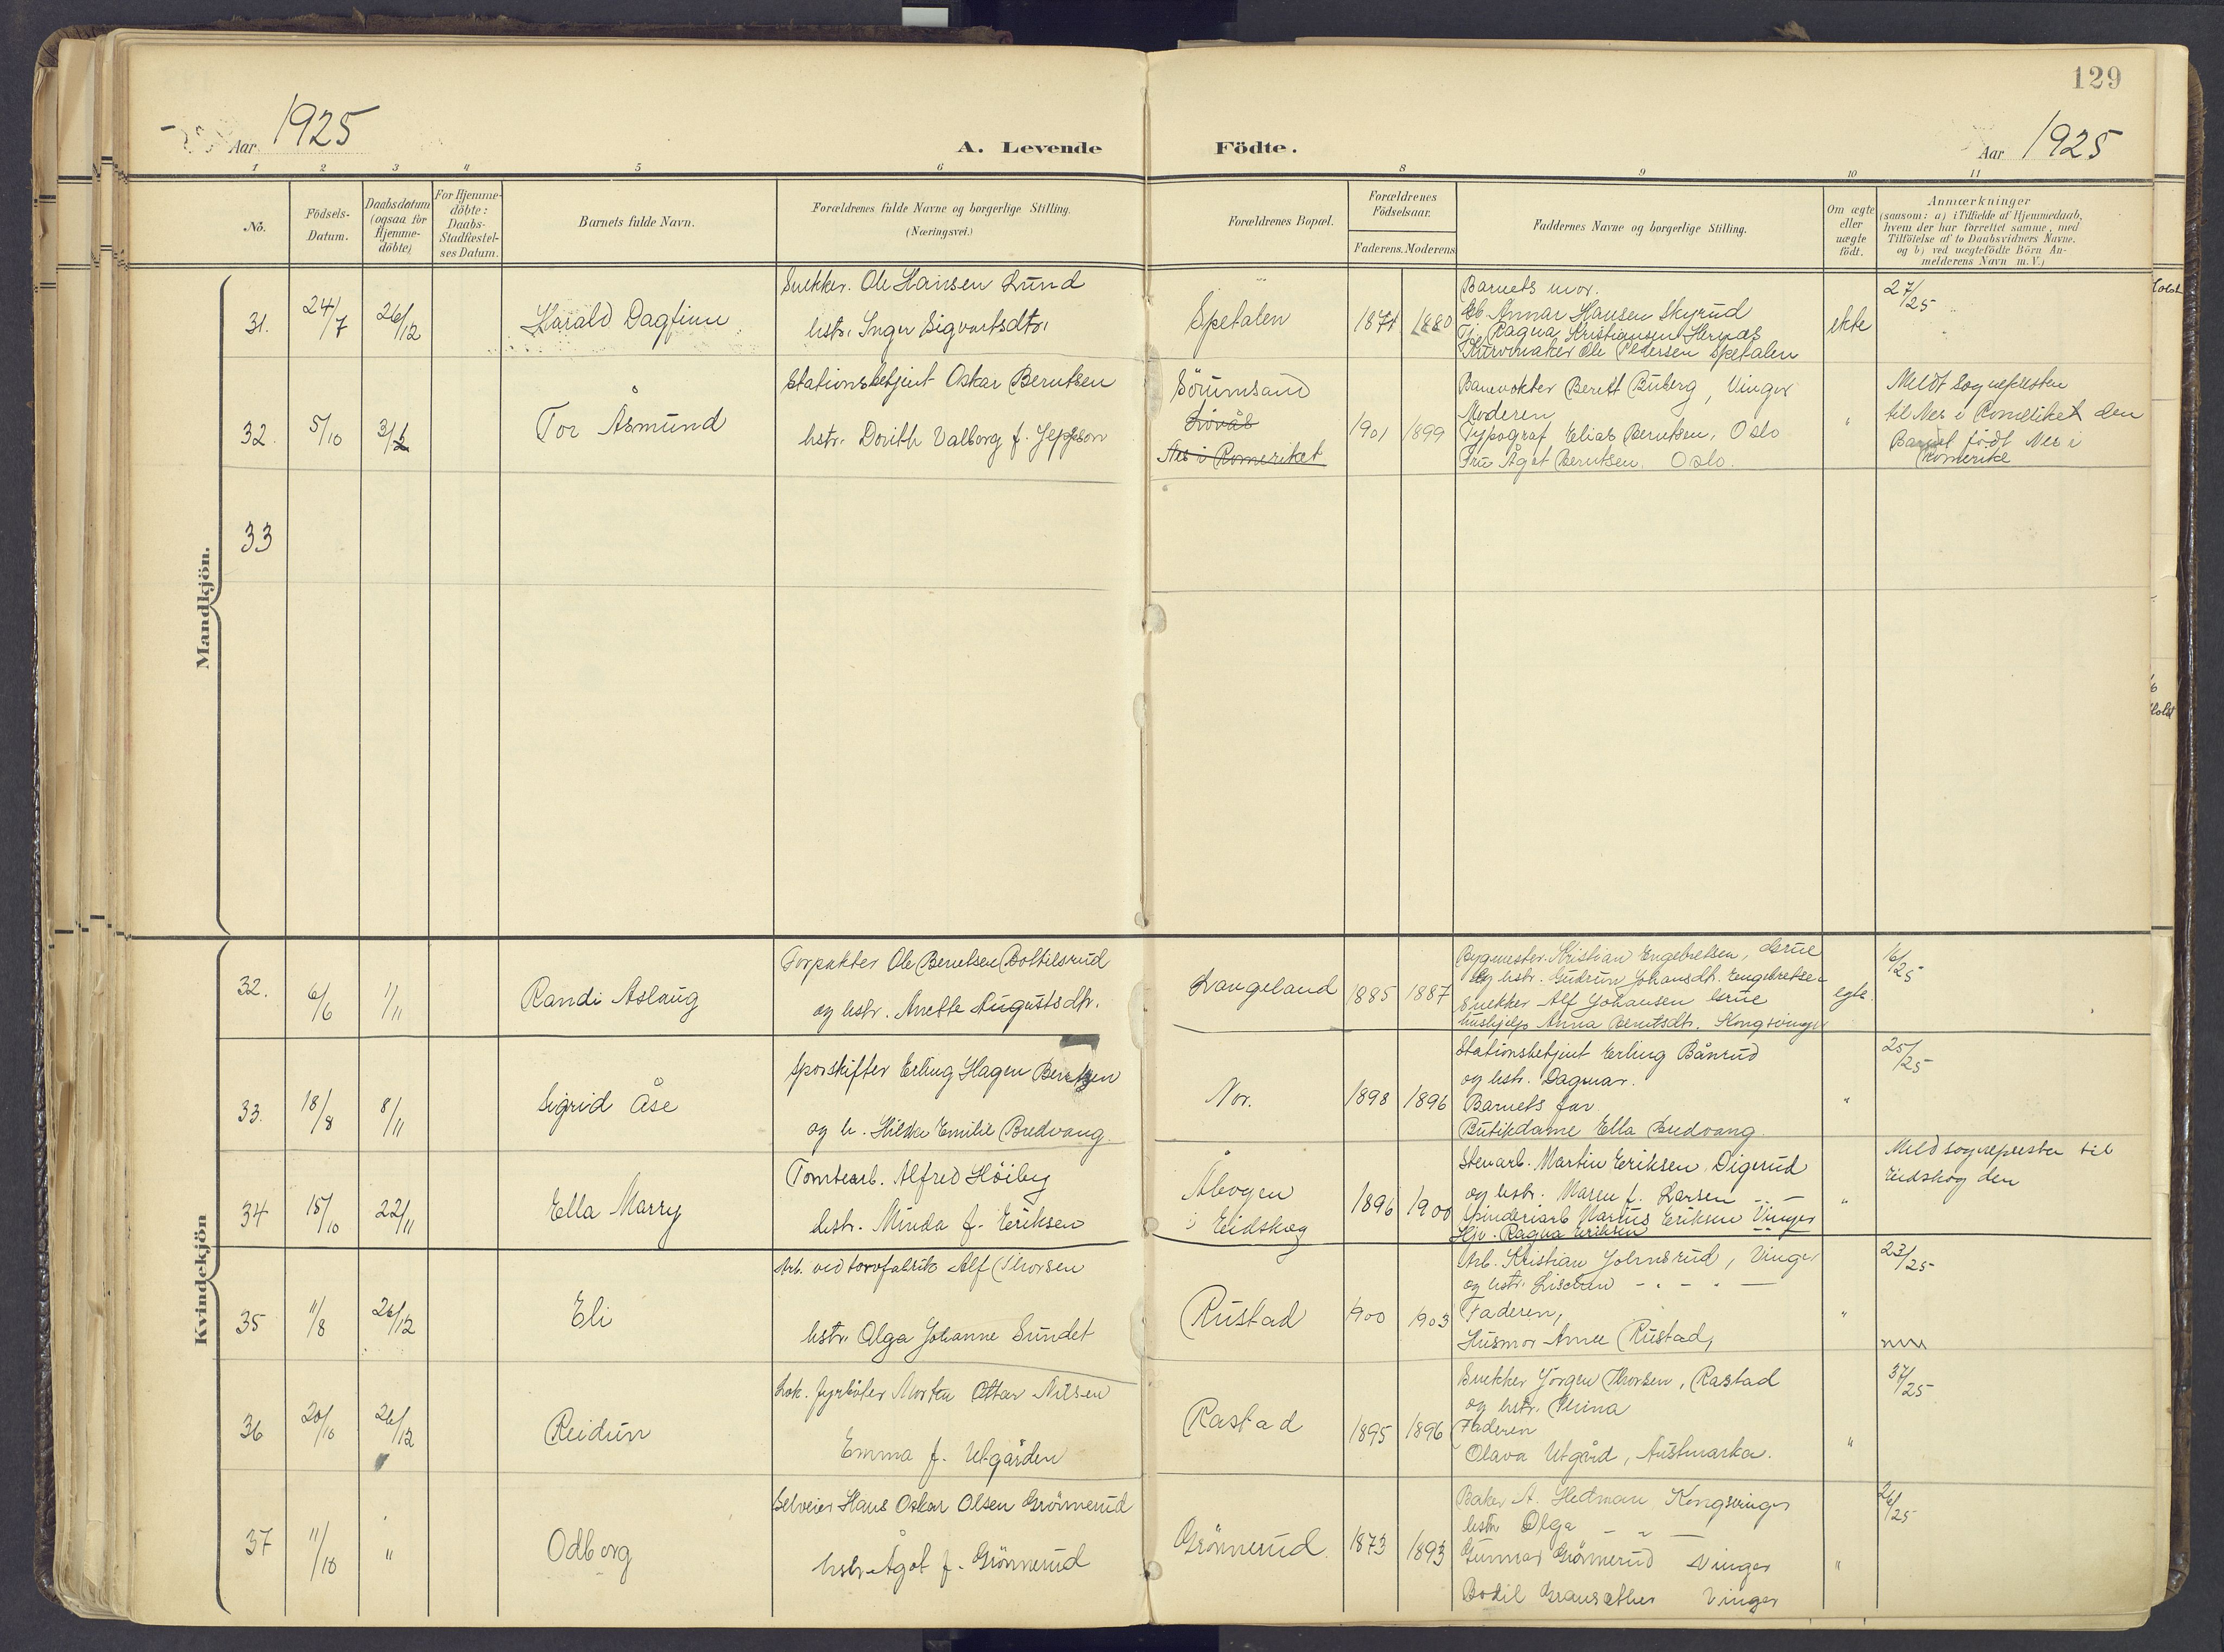 129
Aar 1925
A. Levende Födte.
Aar 1925
1 2 3 4 5 6 8 9 10 11
No.
Födsels-
Datum.
Daabsdatum
(ogsaa for
Hjemme-
döbte)
For Hjemme-
döbte:
Daabs-
Stadfæstel-
ses Datum.
Barnets fulde Navn.
Forældrenes fulde Navne og borgerlige Stilling.
(Næringsvei.)
Forældrenes Bopæl.
Forældrenes
Födselsaar.
Faderens. Moderens
Faddernes Navne og borgerlige Stilling.
Om ægte
eller
uægte
födt.
Anmærkninger
(saasom: a) i Tilfælde af Hjemmedaab,
hvem der har forrettet samme, med
Tilföielse af to Daabsvidners Navne.
og b) ved uægtefödte Börn An-
melderens Navn m. V.)
Mandkjön.
31.
24/7
26/12
Harald Dagfinn
Snekker. Ole Hansen Lund
hstr. Inger Sigvartsdtr.
Spetalen
1871
1880
Barnets mor.
Annar Hansen Skyrud
Tj. Ragna Kristiansen Hernes
Kurvmaker Ole Pedersen Spetalen
ekte
27/25
32.
5/10
Tor Åsmund
Stationsbetjent Oskar Berntsen
hstr. Dorith Valborg f. Jeppson
Sörumsand
Lövås
Nes i Romeriket
1901
1899
Banevokter Berett Buberg, Vinger
Moderen
Typograf Elias Berntsen, Oslo
Fru Ågot Berntsen. Oslo.
"
Meldt Sognepresten
til Nes i Romeriket den
Barnet födt Nes i
Romerike
33
Kvindekjön
32.
6/6
1/11
Randi Aslaug
Forpakter Ole Berntsen Bottilsrud
og hstr. Anette Augustsdtr.
Langeland
1885
1887
Bygmester. Kristian Engebretsen, Grue
og hstr. Gudrun Johansdtr. Engebretsen
Snekker Alf Johansen Grue
hushjelp Anna Berntsdtr. Kongsvinger
egte.
16/25
33.
18/8
8/11
Sigrid Åse
Sporskifter Erling Hagen Berntzen
og h. Hilda Emilie Bredvang.
Nor.
1898
1896
Stationsbetjent Erling Bånrud
og hstr. Dagmar.
Barnets far
Butikdame Ella Bredvang
"
25/25
34
15/10
22/11
Ella Marry
Tomtearb. Alfred Höiby
hstr. Minda f. Eriksen
Åbogen
i Eidskog
1896
1900
Stenarb. Martin Eriksen Digerud
og hstr. Maren f. Larsen - " -
Spinderiarb Marius Eriksen Vinger
Hjv. Ragna Eriksen
"
Meld sognepresten til
Eidskog den
35
11/8
26/12
Eli
Arb. ved torvfabrik Alf Thorsen
hstr. Olga Johanne Sundet
Rustad
1900
1903
Arb. Kristian Johnsrud, Vinger
og hstr. - " - " -
Faderen,
Husmor Anne Rustad,
"
23/25
36
20/10
26/12
Reidun
Lok. fyrböter Morten Ottar Nilsen
Emma f. Utgården
Rastad
1895
1896
Snekker Jörgen Thorsen, Rastad
og hstr. Thina
Faderen
Olava Utgård, Austmarka.
"
37/25
37
11/10
"
Odborg
Selveier Hans Oskar Olsen Grönnerud
hstr. Ågot f. Grönnerud
Grönnerud.
1873
1893
Baker A. Hedman Kongsvinger
hstr Olga - " -
Gunnar Grönnerud Vinger
Bodil Gransether Vinger
"
26/25